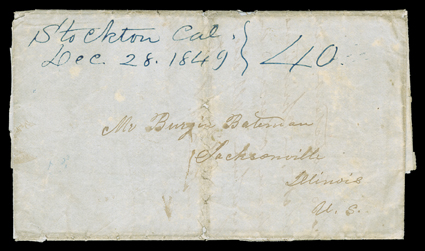 Stockton Cal.
Dec. 28. 1849 } 40.
Mr Burgin Bateman
Jacksonville
Illinois
U. S.